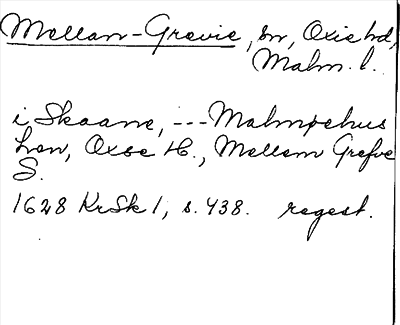 Mellan-Grevie, sn, Oxie hd,
Malm. l.
i Skaane, --- Malmøehus
Len, Oxse H., Mellem Grefve
S.
1628 KrSk 1, s. 438. regest.